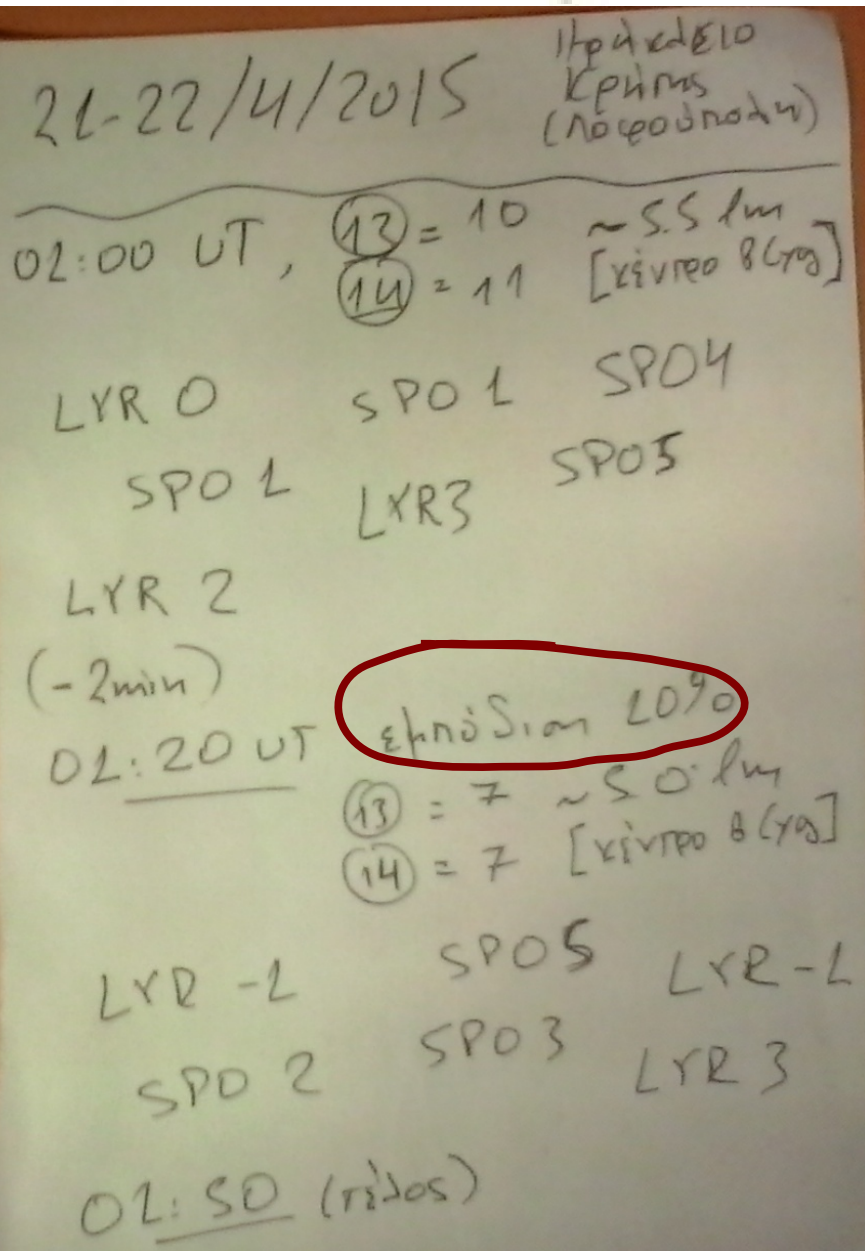 21-22/4/2015
Ηράκλειο
Κρήτης
(Λοφούπολη)
01:00 UT, 13 = 10 ~5.5 lm
14 = 11 [κέντρο β Cyg]
LYR 0 SPO 1 SPO4
SPO 1 LYR3 SPO5
LYR 2
(-2min)
01:20 UT εμπόδιση 10%
13 = 7 ~5.0 lm
14 = 7 [κέντρο β Cyg]
LYR -1 SPO5 LYR-1
SPO 2 SPO3 LYR 3
01:50 (τέλος)